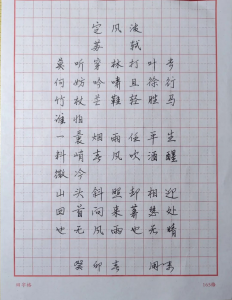 定风波
苏轼
莫听穿林打叶声
何妨吟啸且徐行
竹杖芒鞋轻胜马
谁怕
一蓑烟雨任平生
料峭春风吹酒醒
微冷
山头斜照却相迎
回首向来萧瑟处
也无风雨也无晴
癸卯春